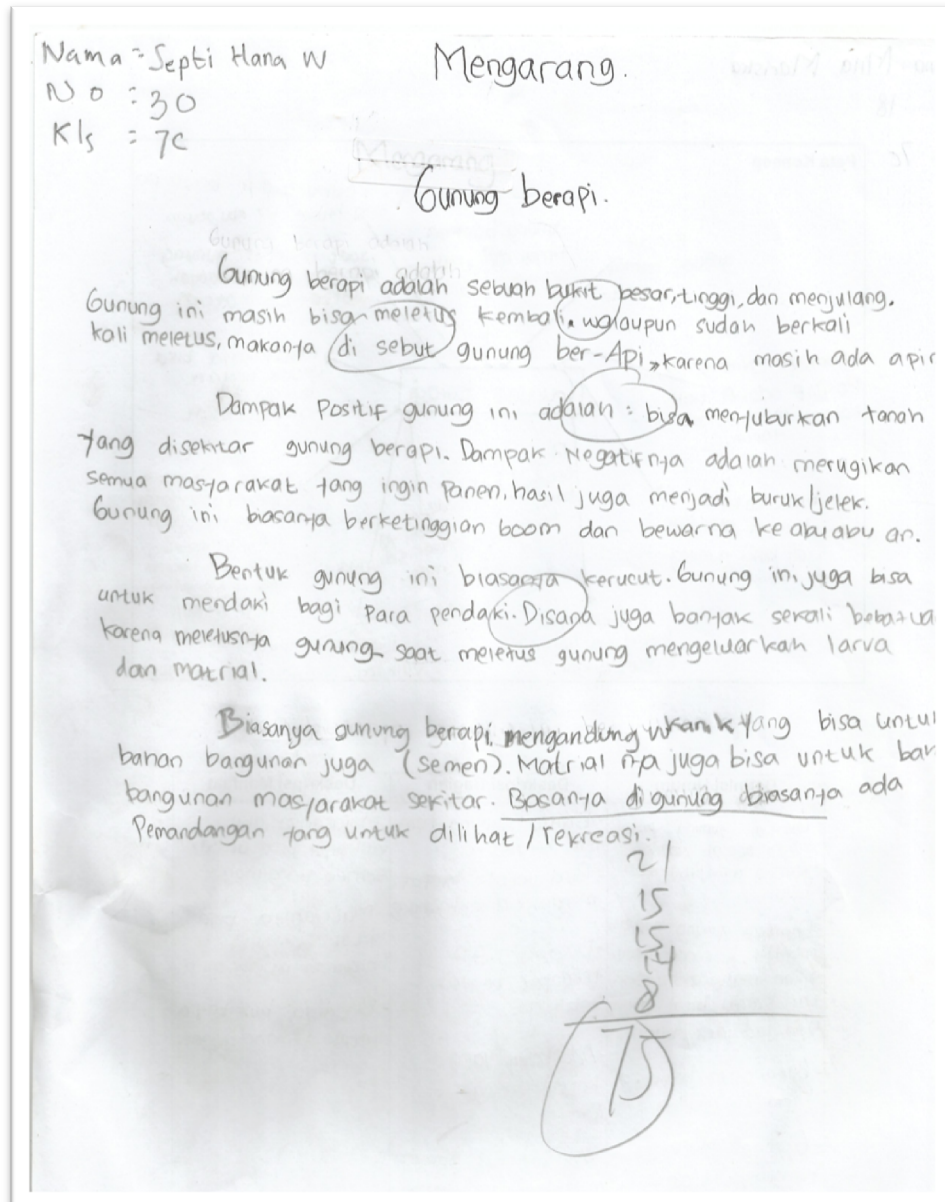 Nama = Septi Hana W
Mengarang.
No : 30
Kls = 7C
Mengarang
Gunung berapi.
Gunung berapi adalah
Gunung berapi adalah sebuah bukit besar, tinggi, dan menjulang.
Gunung ini masih bisa meletus kembali. walaupun sudah berkali
kali meletus, makanya di sebut gunung ber-Api, karena masih ada apin
Dampak Positif gunung ini adalah : bisa menyuburkan tanah
yang disekitar gunung berapi. Dampak Negatifnya adalah merugikan
semua masyarakat yang ingin panen, hasil juga menjadi buruk/jelek.
Gunung ini biasanya berketinggian 600m dan bewarna ke abu abu an.
Bentuk gunung ini biasanya kerucut. Gunung ini juga bisa
untuk mendaki bagi Para pendaki. Disana juga banyak sekali bebatua
karena meletusnya gunung saat meletus gunung mengeluarkan larva
dan matrial.
Biasanya gunung berapi mengandung yang bisa untu
bahan bangunan juga (semen). Matrial nya juga bisa untuk bah
bangunan masyarakat sekitar. Basanya di gunung biasanya ada
Pemandangan yang untuk dilihat / rekreasi.
21
15
15
8
75